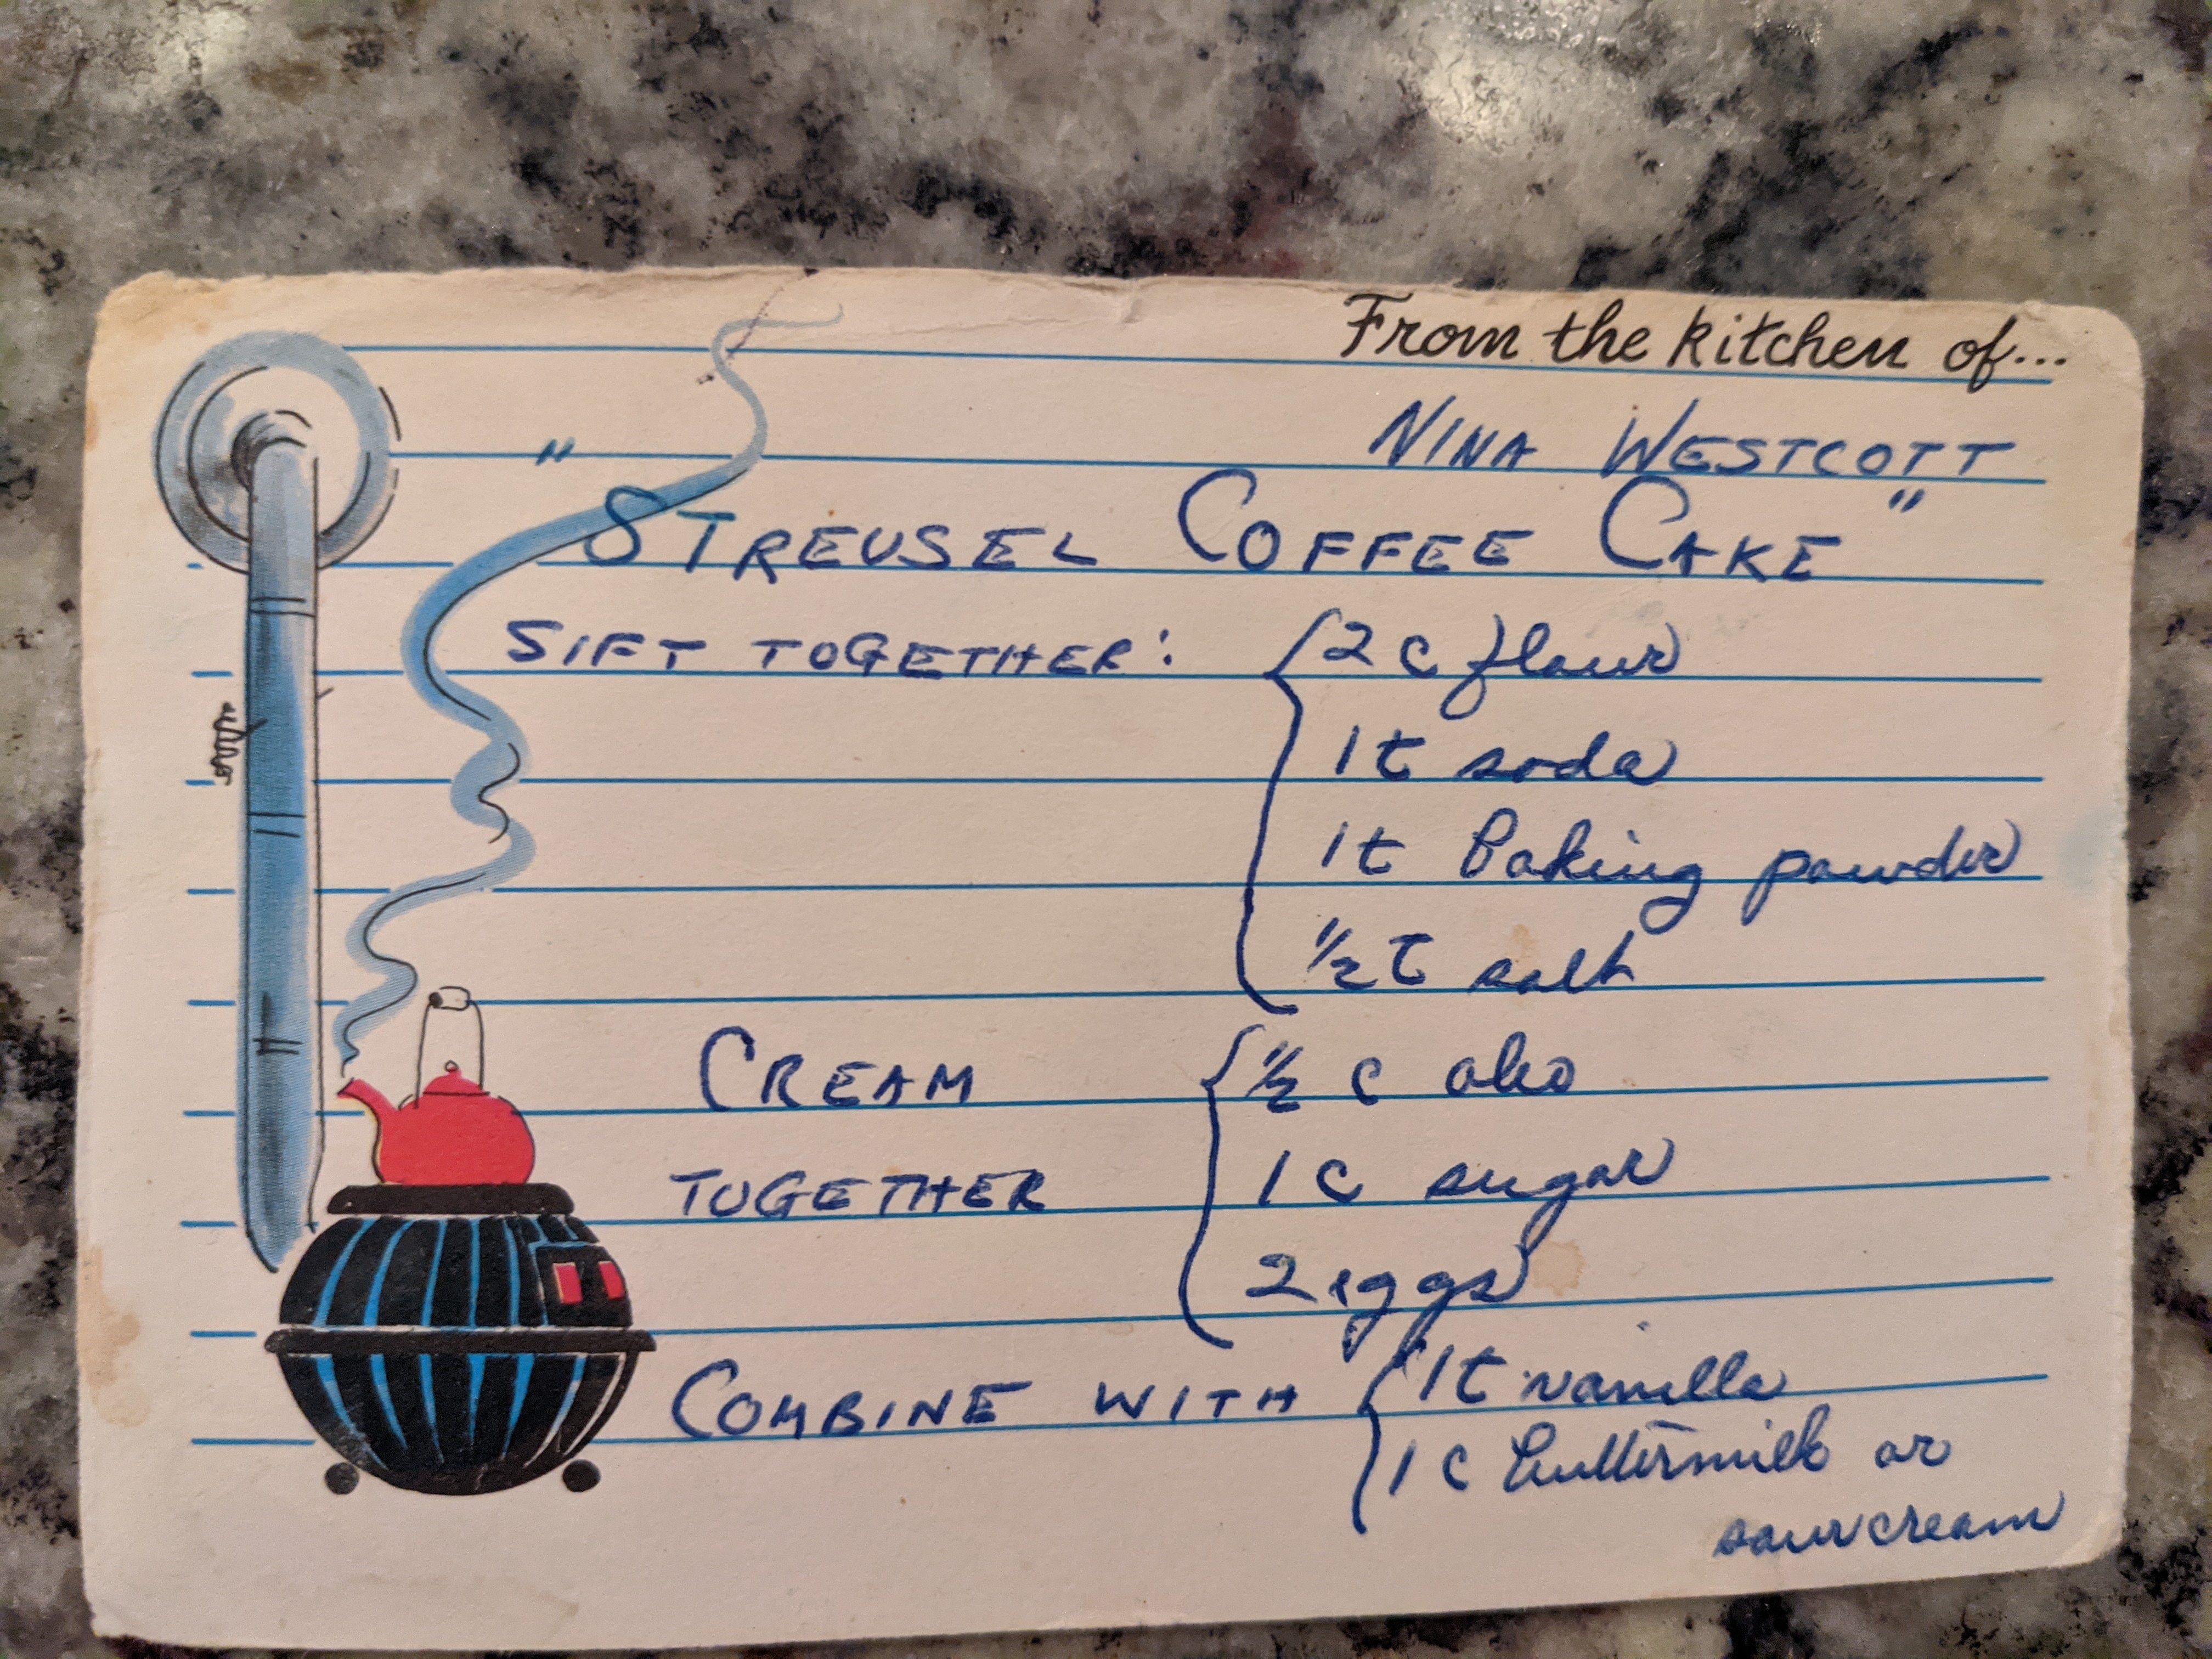 From the kitchen of...
NINA WESTCOTT
"STREUSEL COFFEE CAKE"
SIFT TOGETHER: { 2 c flour
1 t soda
1 t Baking powder
½ t salt
CREAM { ½ c oleo
TOGETHER 1 c sugar
2 eggs
COMBINE WITH { 1 t vanilla
1 c buttermilk or
sour cream